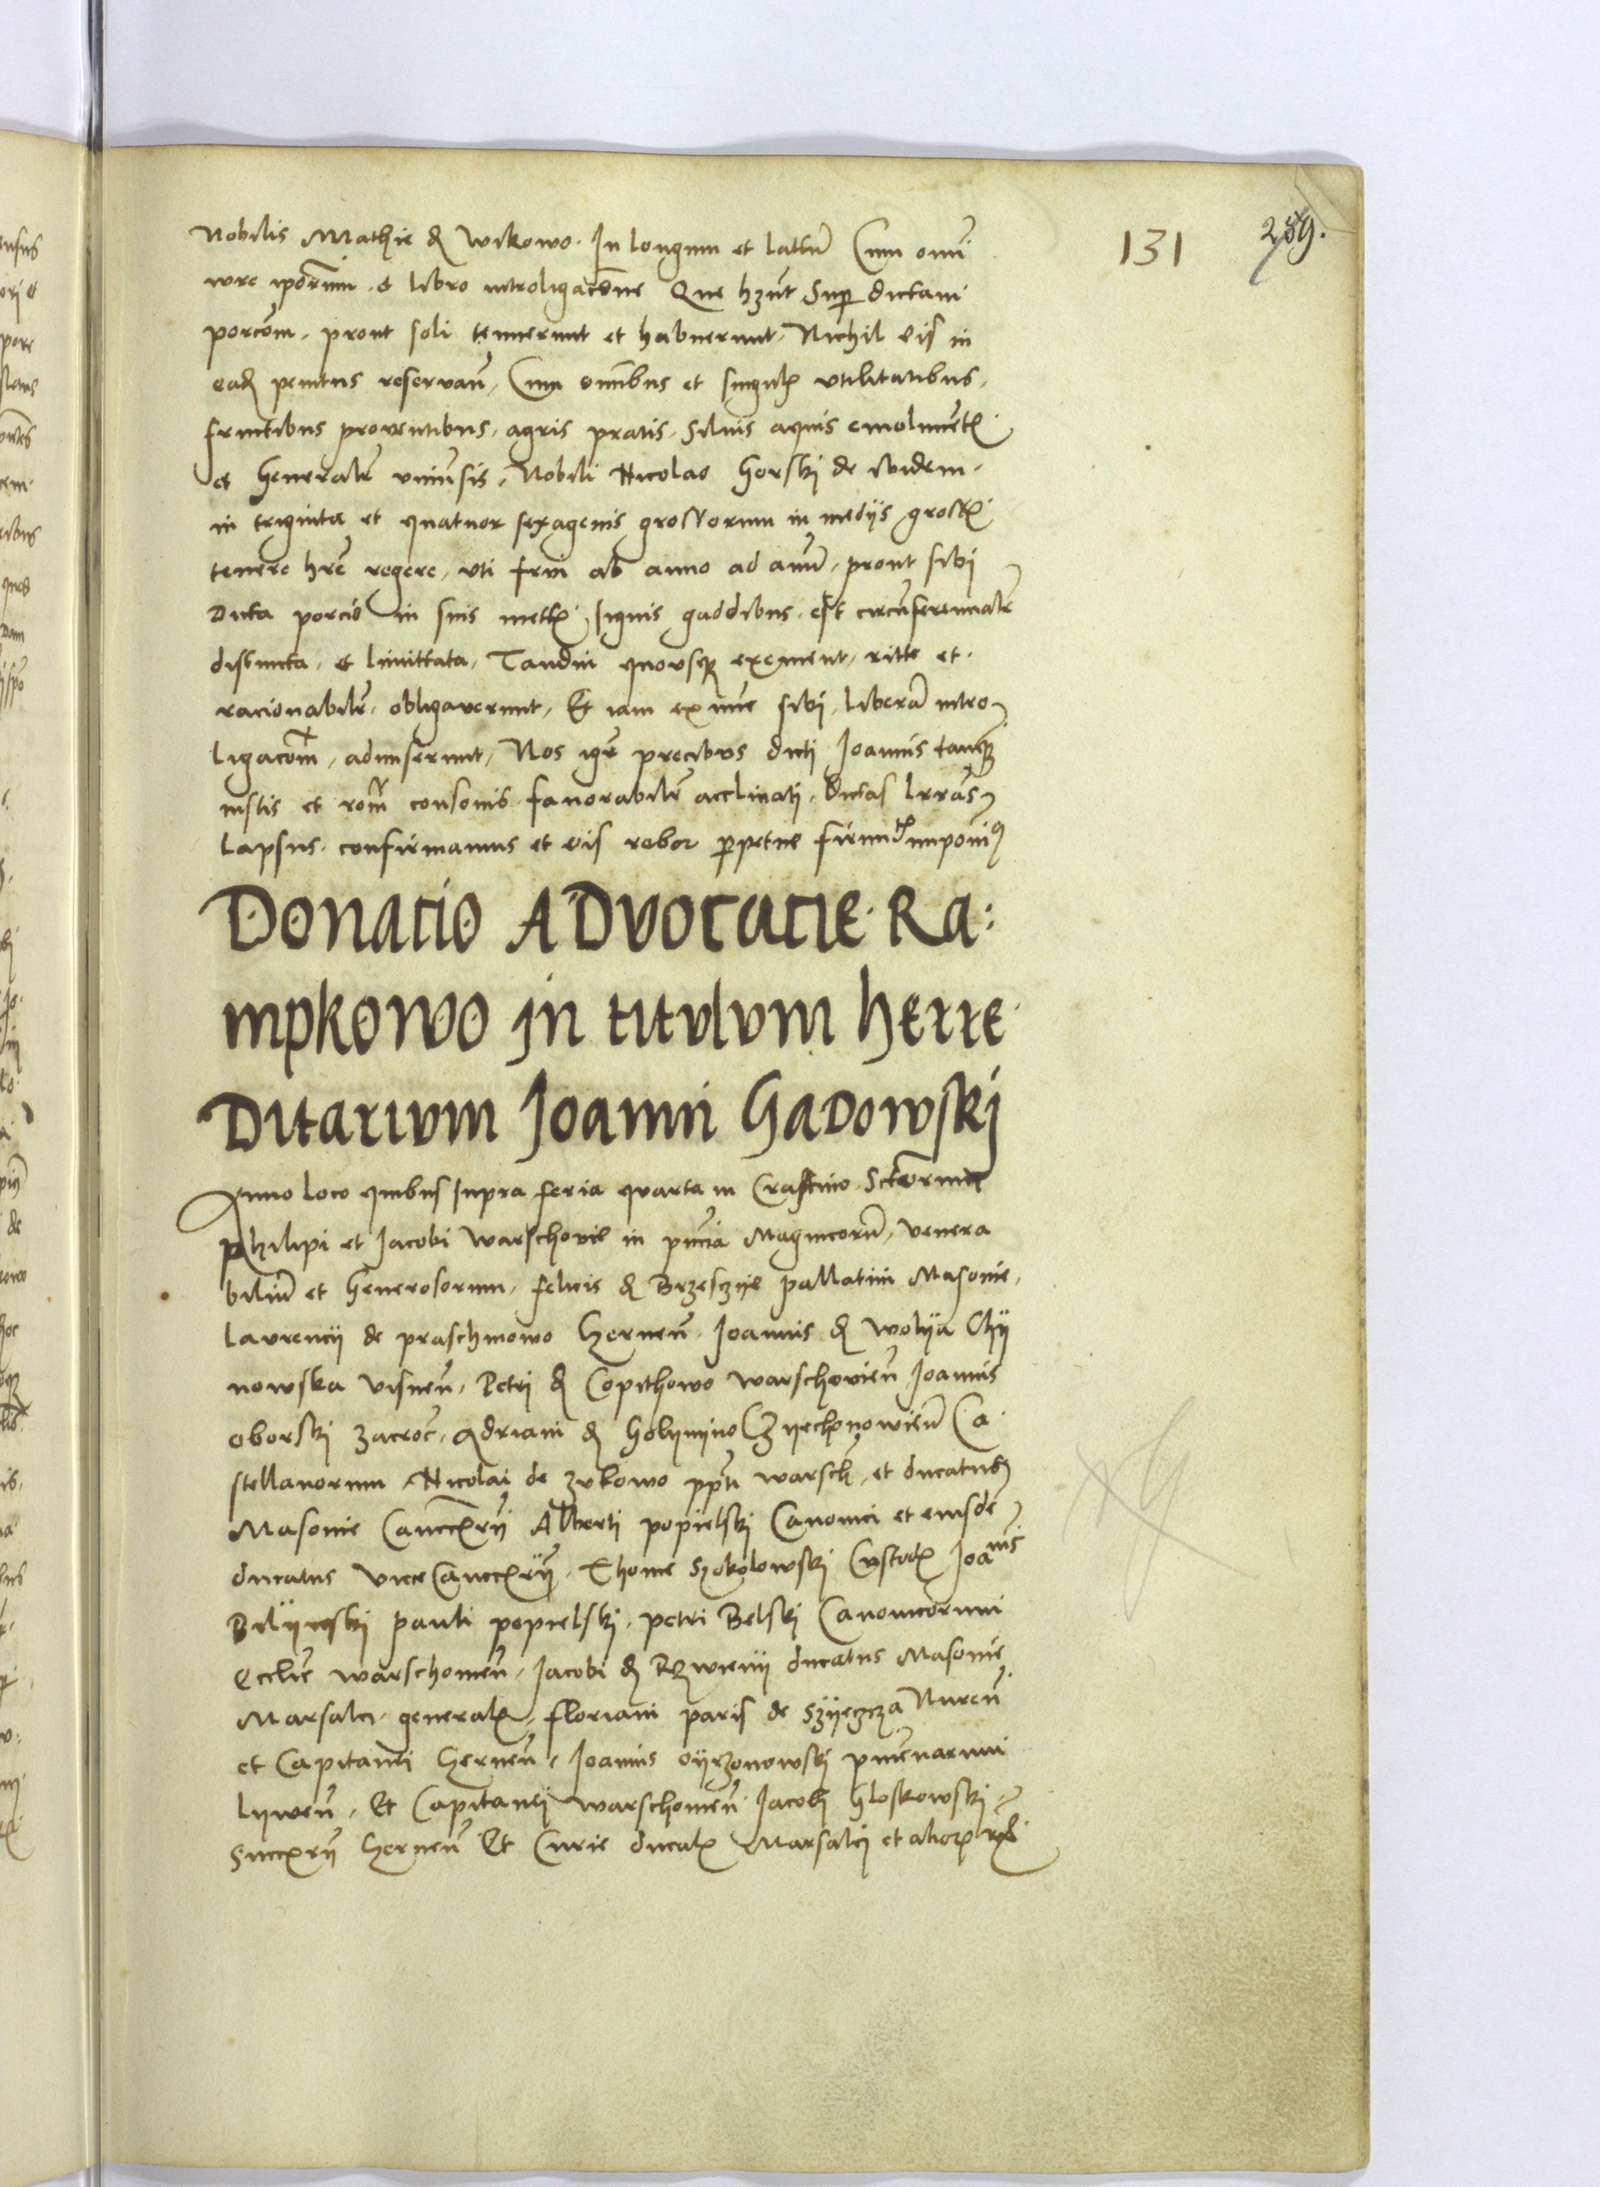 131 259.
Nobilis Mathie de Wikowo. In longum et lattum Cum omni
iure ipsorum et libro introligacione Que hnt Super dictam
porcom. prout soli tenuerunt et habuerunt. Nichil eis in
eadem penitus reservan̄. Cum omibus et singulis utilitatibus.
fructibus proventibus. agris pratis. Silvis aquis emolument
et Generalr univrsis. Nobili Nicolao Gorski de ibidem.
in triginta et quatuor sexagenis grossorum in medijs gross
tenere hre regere. uti frui ab anno ad annū. prout sibi
Dicta porcio in suis mettis signis gaddibus. est circumferencialr
distincta. et limittata. Tandiu quousque exement. ritte et
racionabilr. obligaverunt. Et iam ex nunc sibi. liberā intro
ligacom. admiserunt. Nos igr precibus dicti Joannis tanq
iustis et rom consonis favorabilr acclinati. Dictas lrras
Lapsus. confirmamus et eis robor perpetue firmi imponi
Donatio Advocatie. Ra:
mpkowo in titulum herre
Ditarium Joanni Gadowski
Anno loco quibus supra feria quarta in Crastino Sctorum
Philipi et Jacobi Warschovie in pncia Magnicorū. venera
biliū et Generosorum. felicis de Brzesczye pallatini Masovie.
Laurencij de praschmowo Czernen̄. Joannis de Wolya Chy
nowska Visnen̄. Petri de Copithowo Warschovien̄ Joannis
Oborski Zacroc. Adriani de Golymyno Czyechonowien̄ Ca
stellanorum Nicolai de Zukowo ppti warsch. et ducatus
Masovie Cancxrij Alberti popielski Canonici et eiusdē
ducatus viceCancxrij. Thome Szokolowski Custod Joannis
Bilynski pauli popielski. petri Belski Canonicorum
Ecclie warschowien̄. Jacobi de Rzwieny ducatus Masovie
Marsalci. general. floriani paris de Szyeczcza Nuren̄
et Capitanei Czernen̄. Joannis Oyrzonowski pincnarum
Lywen̄. Et Capitanei warschowien̄ Jacobi Gloskowski
Succxrij Czernen̄ Et Curie ducal Marsalci et alior